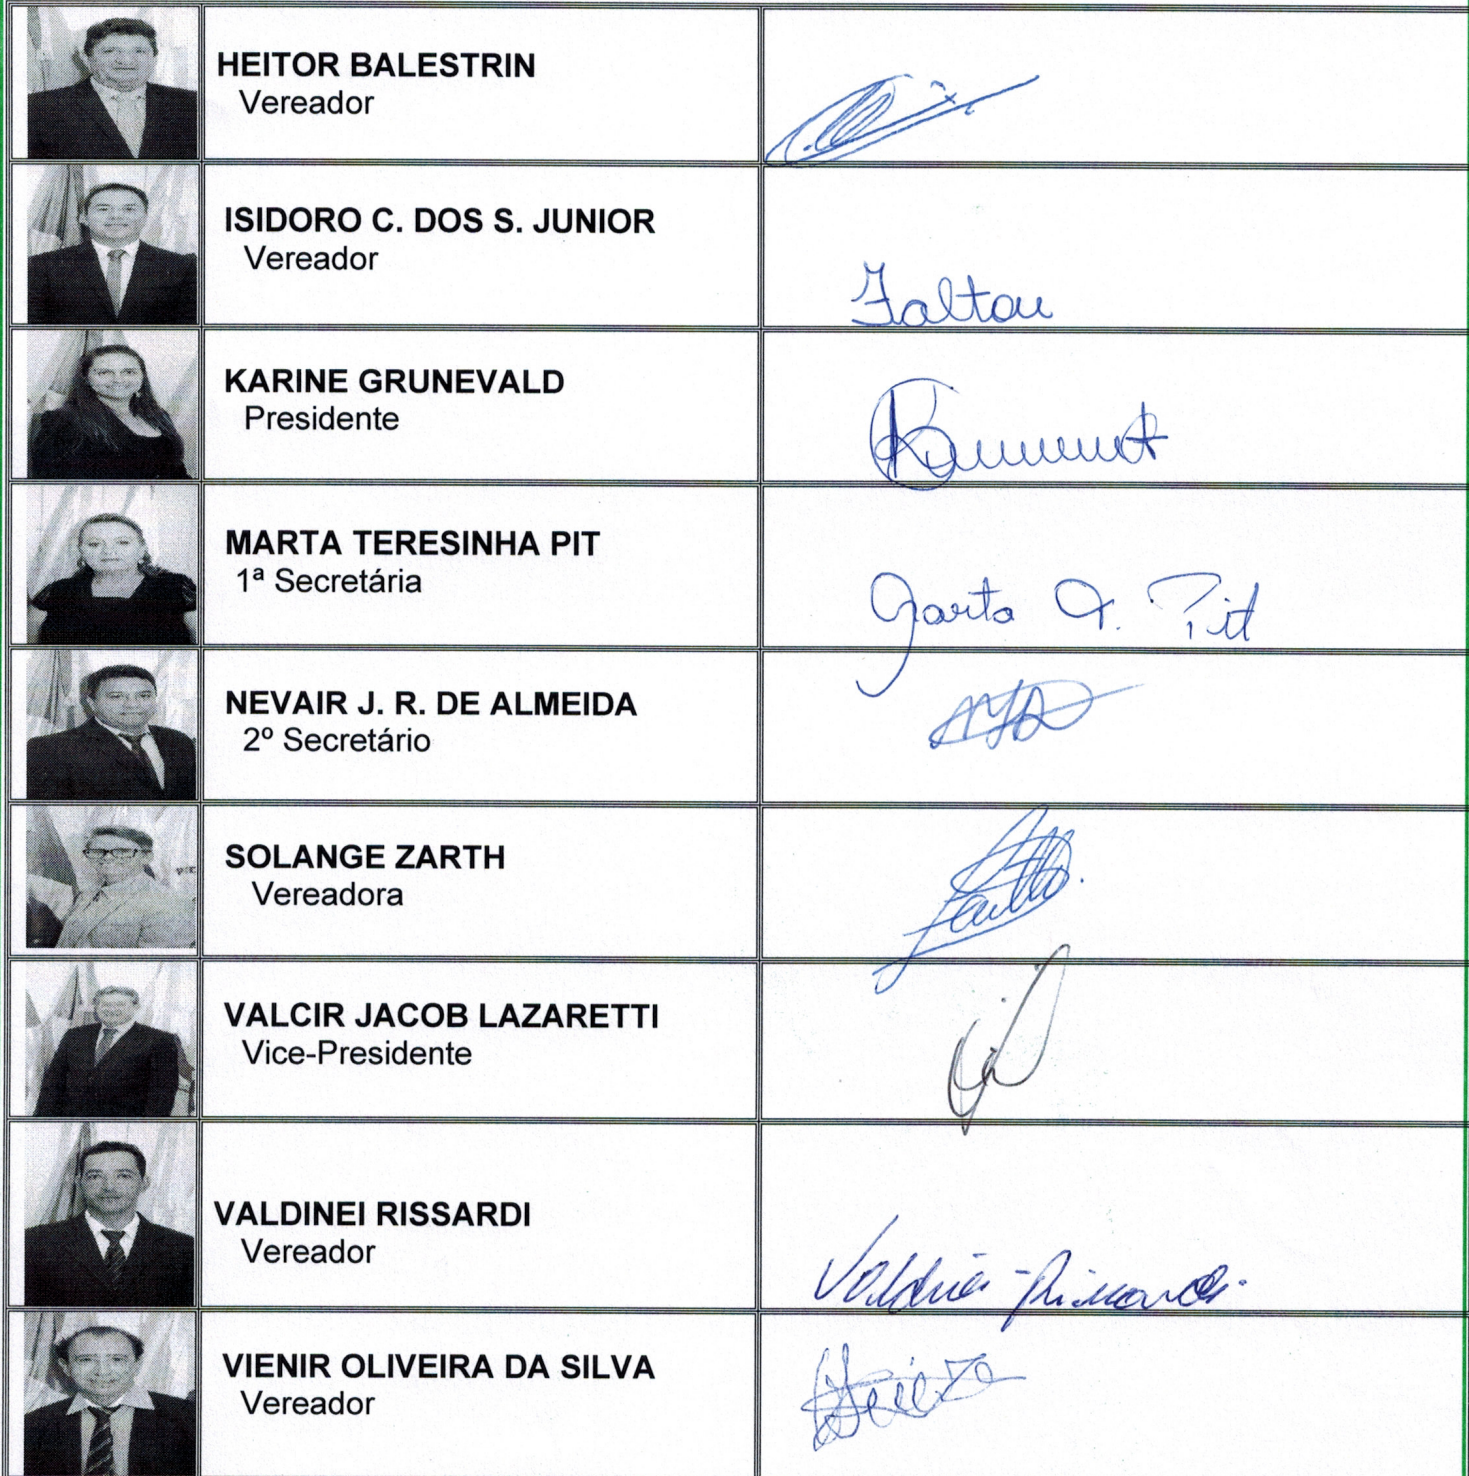 HEITOR BALESTRIN
Vereador
ISIDORO C. DOS S. JUNIOR
Vereador
Faltou
KARINE GRUNEVALD
Presidente
MARTA TERESINHA PIT
1ª Secretária
Marta T. Pit
NEVAIR J. R. DE ALMEIDA
2º Secretário
SOLANGE ZARTH
Vereadora
VALCIR JACOB LAZARETTI
Vice-Presidente
VALDINEI RISSARDI
Vereador
Valdinei Rissardi
VIENIR OLIVEIRA DA SILVA
Vereador